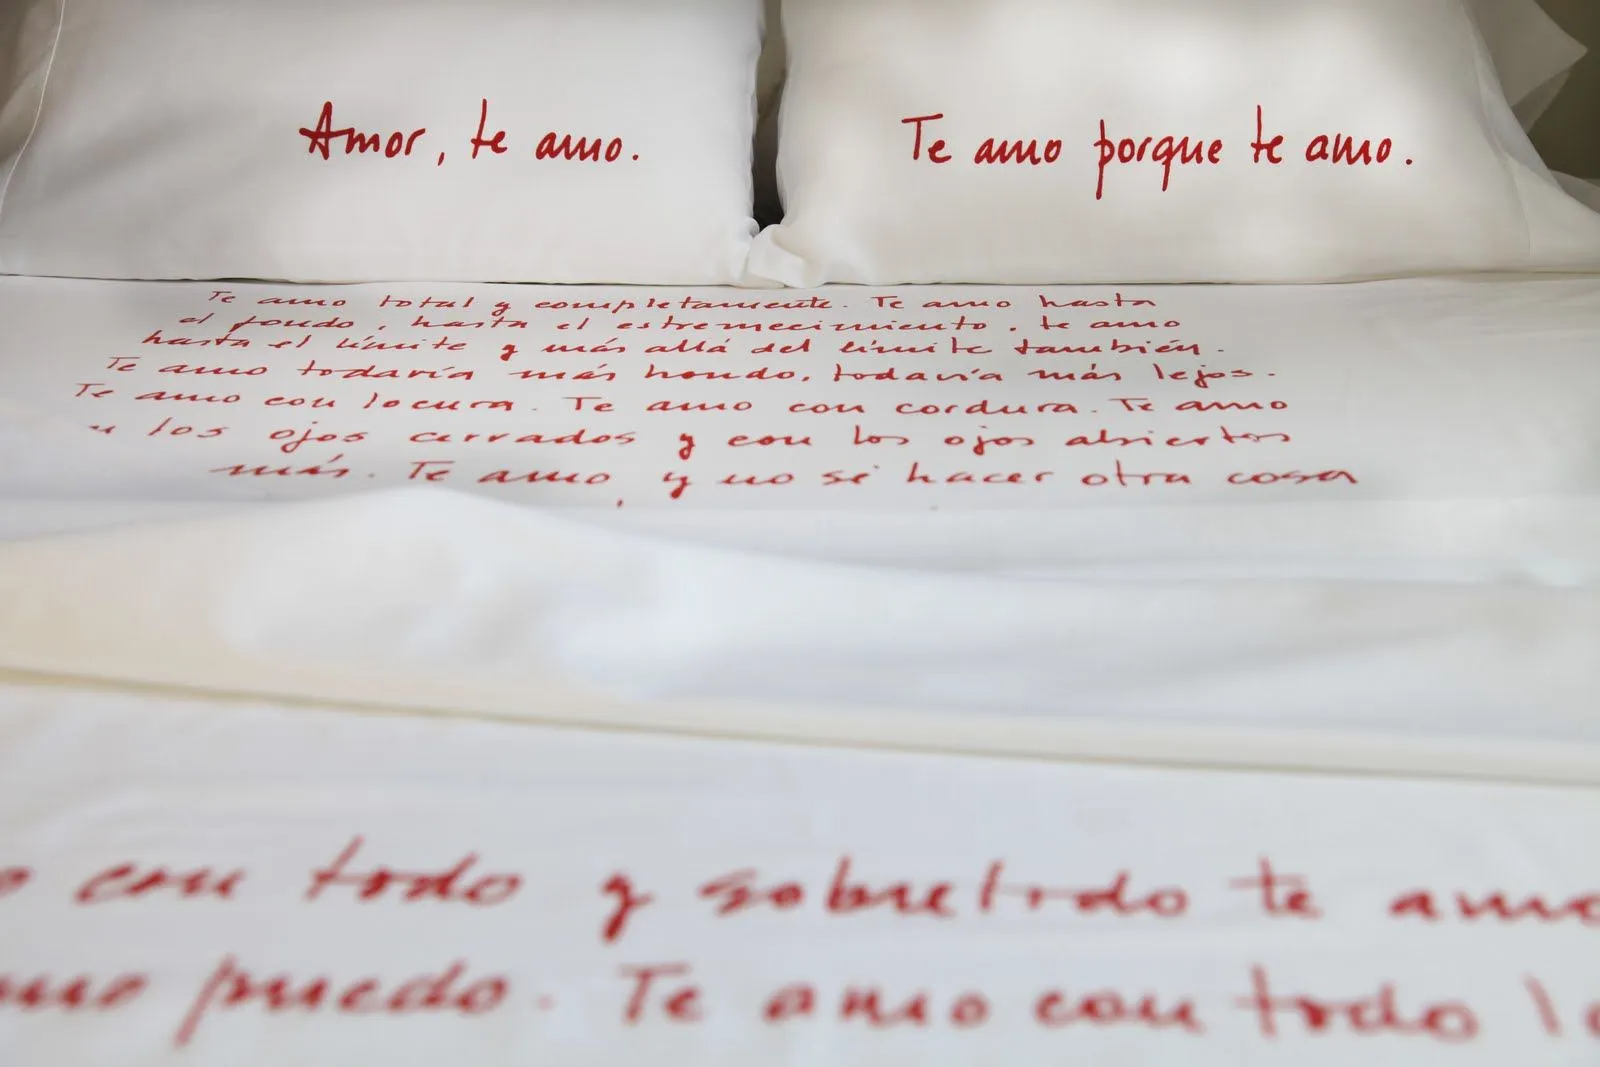 Amor, te amo.
Te amo porque te amo.
Te amo total y completamente. Te amo hasta
el fondo, hasta el estremecimiento, te amo
hasta el límite y más allá del límite también.
Te amo todavía más hondo, todavía más lejos.
Te amo con locura. Te amo con cordura. Te amo
los ojos cerrados y con los ojos abiertos
más. Te amo, y no sé hacer otra cosa
con todo y sobretodo te amo
puedo. Te amo con todo